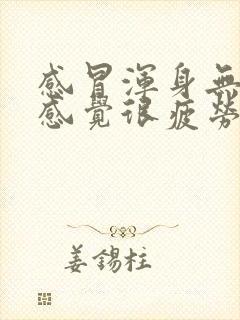 感冒渾身無
感覺很疲勞
姜錫柱